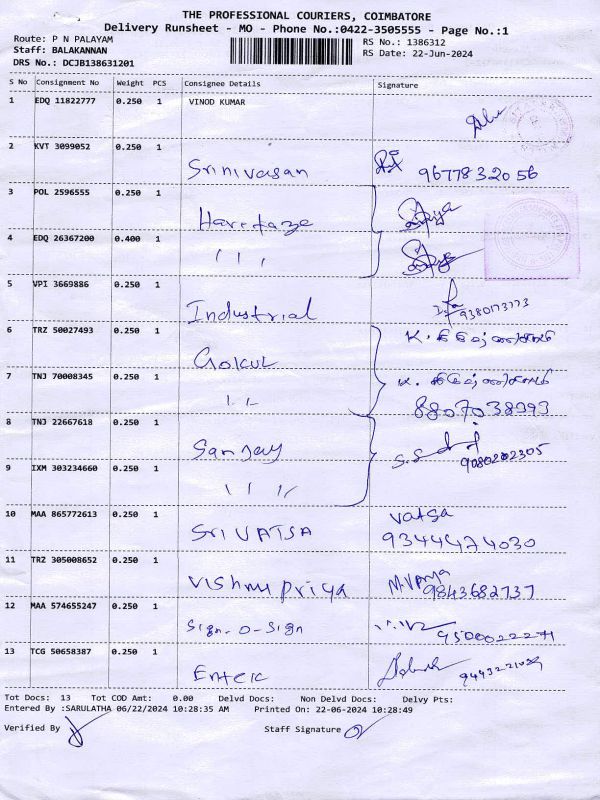 THE PROFESSIONAL COURIERS, COIMBATORE
Delivery Runsheet - MO - Phone No.:0422-3505555 - Page No.:1
Route: P N PALAYAM RS No.: 1386312
Staff: BALAKANNAN RS Date: 22-Jun-2024
DRS No.: DCJB138631201
S No Consignment No Weight PCS Consignee Details Signature
1 EDQ 11822777 0.250 1 VINOD KUMAR
2 KVT 3099052 0.250 1 Srinivasan 9677832056
3 POL 2596555 0.250 1
4 EDQ 26367200 0.400 1 , , ,
5 VPI 3669886 0.250 1 Industrial 9380173173
6 TRZ 50027493 0.250 1 Gokul
7 TNJ 70008345 0.250 1 , ,
8807038993
8 TNJ 22667618 0.250 1 Sanjay 9080202305
9 IXM 303234660 0.250 1 , , ,,
10 MAA 865772613 0.250 1 SRIVATSA Vatsa
9344474030
11 TRZ 305008652 0.250 1 Vishnu Priya 9843682737
12 MAA 574655247 0.250 1 Sign-O-Sign 9500022271
13 TCG 50658387 0.250 1
Tot Docs: 13 Tot COD Amt: 0.00 Delvd Docs: Non Delvd Docs: Delvy Pts:
Entered By :SARULATHA 06/22/2024 10:28:35 AM Printed On: 22-06-2024 10:28:49
Verified By Staff Signature